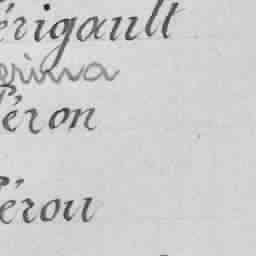 érigault
erina
Péron
Pérou